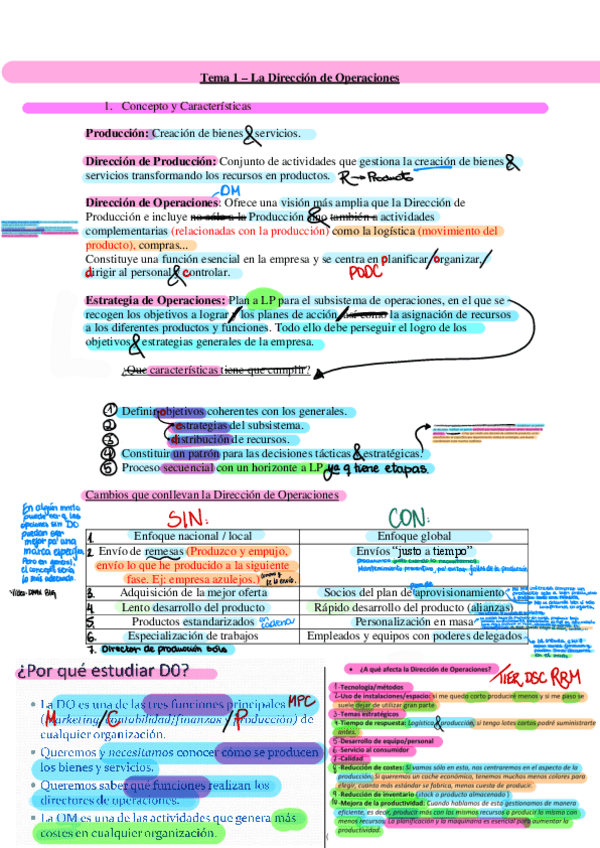 Tema 1 – La Dirección de Operaciones
1. Concepto y Características
Producción: Creación de bienes & servicios.
Dirección de Producción: Conjunto de actividades que gestiona la creación de bienes &
servicios transformando los recursos en productos. R → Producto
OM
Dirección de Operaciones: Ofrece una visión más amplia que la Dirección de
Producción e incluye no sólo a la Producción & no también a actividades
complementarias (relacionadas con la producción) como la logística (movimiento del
producto), compras...
Constituye una función esencial en la empresa y se centra en planificar/organizar,/
dirigir al personal & controlar. PODC
Estrategia de Operaciones: Plan a LP para el subsistema de operaciones, en el que se
recogen los objetivos a lograr / los planes de acción / así como la asignación de recursos
a los diferentes productos y funciones. Todo ello debe perseguir el logro de los
objetivos & estrategias generales de la empresa.
¿Que características tiene que cumplir?
1 Definir objetivos coherentes con los generales.
2 estrategias del subsistema.
3 distribución de recursos.
4 Constituir un patrón para las decisiones tácticas & estratégicas.
5 Proceso secuencial con un horizonte a LP ya q tiene etapas.
Cambios que conllevan la Dirección de Operaciones
SIN: CON:
1. Enfoque nacional / local Enfoque global
2. Envío de remesas (Produzco y empujo, Envíos “justo a tiempo”
envío lo que he producido a la siguiente
fase. Ej: empresa azulejos.)
3. Adquisición de la mejor oferta Socios del plan de aprovisionamiento
4. Lento desarrollo del producto Rápido desarrollo del producto (alianzas)
5. Productos estandarizados Personalización en masa
6. Especialización de trabajos Empleados y equipos con poderes delegados
7. Director de producción sólo
¿Por qué estudiar DO?
• La DO es una de las tres funciones principales MPC
(Marketing/Contabilidad/finanzas/Producción) de
cualquier organización.
• Queremos y necesitamos conocer cómo se producen
los bienes y servicios.
• Queremos saber qué funciones realizan los
directores de operaciones.
• La OM es una de las actividades que genera más
costes en cualquier organización.
• ¿A qué afecta la Dirección de Operaciones? TIER, DSC RRM
1 -Tecnología/métodos
2 -Uso de instalaciones/espacio: si me quedo corto produciré menos y si me paso se
suele dejar de utilizar gran parte.
3 -Temas estratégicos
4 -Tiempo de respuesta: Logística & producción, si tengo lotes cortos podré suministrarte
antes.
5 -Desarrollo de equipo/personal
6 -Servicio al consumidor
7 -Calidad
8 -Reducción de costes: Si vamos sólo en esto, nos centraremos en el aspecto de la
producción. Si queremos un coche económico, tenemos muchos menos colores para
elegir; cuanto más estándar se fabrica, menos cuesta de producir.
9 -Reducción de inventario (stock o producto almacenado)
10 -Mejora de la productividad: Cuando hablamos de esto gestionamos de manera
eficiente, es decir, producir más con los mismos recursos o producir lo mismo con
menos recursos. La planificación y la maquinaria es esencial para aumentar la
productividad.